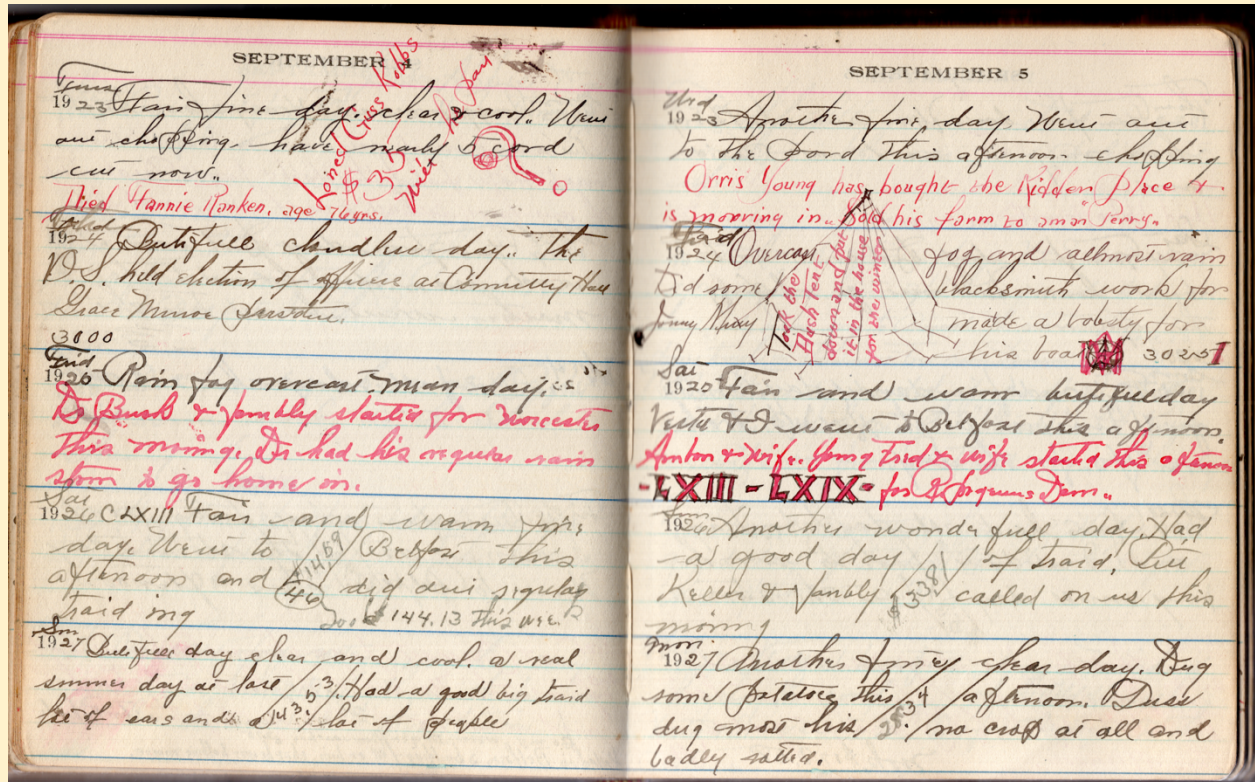 SEPTEMBER 4
Tues
1923 Fair fine day. clear & cool. Went
out chopping. have nearly 5 cord
cut now.
Joined Guss Robbs
$35
he pay
Died Fannie Ranken. age 76 yrs.
1924 Butifull cloudless day. the
D.S. held election of officers at Comunity Hall
Grace Munroe
3000
Frid
1925 Rain fog overcast. mean day.
Dr Busk & fambly started for Worcester
this morning. Dr had his regular rain
storm to go home in.
Sat
1926 CLXIII Fair and warm fine
day. Went to Belfast this
afternoon and did our regular
traiding
14.89
46
Took $144.13 this week
Sun
1927 Butifull day clear and cool. a real
summer day at last Had a good big traid
lot of cars and a lot of people
SEPTEMBER 5
Wed
1923 Another fine day. Went out
to the Pond this afternoon chopping
Orris Young has bought the Kidder place &
is mooving in. Sold his farm to a man Perry.
1924 Overcast fog and allmost rain
Did some blacksmith work for
Jonny made a bobsty for
his boat 3025
Took the
Flash Tent
down and put
it in the house
for the winter
Sat
1925 Fair and warm butifull day
& I went to Belfast this afternoon.
& Wife. Young Fred & wife started this afternoon
-LXIII - LXIX- for Dam.
Sun
1926 Another wonderfull day. Had
a good day of traid,
Keller & fambly called on us this
morning
$33.81
Mon
1927 Another finey clear day. Dug
some potatoes this afternoon.
dug most his no crop at all and
badly rotted.